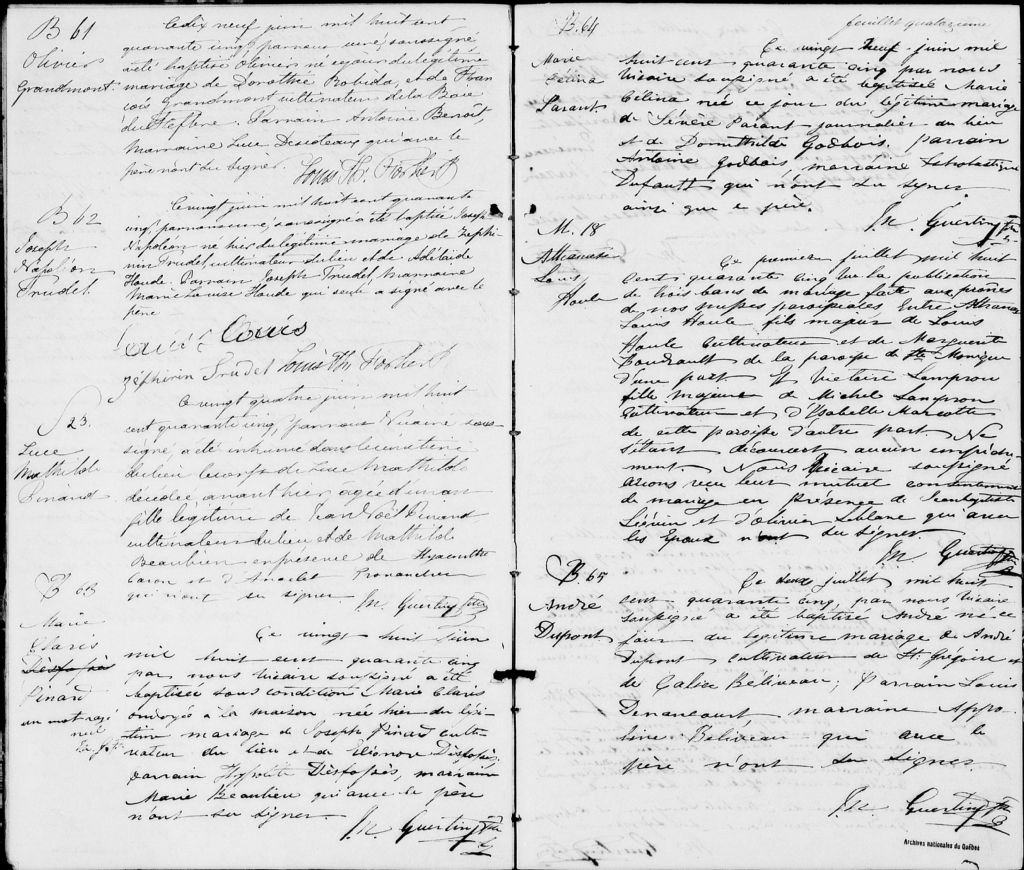 B 61
Olivier
Grandmont
Ce dix neuf juin mil huit cent
quarante cinq, par nous curé, soussigné
a été baptisé Olivier né ce jour du légitime
mariage de Dorothée Robida, et de Fran
çois Grandmont cultivateur de la Baie
du Febvre. Parrain Antoine Benoît,
Marraine Luce Descoteaux qui avec le
père n'ont su signer.
Louis Th. Fortier Ptr
B 62
Joseph
Napoléon
Trudel
Ce vingt juin mil huit cent quarante
cinq, par nous curé, soussigné a été baptisé Joseph
Napoléon né hier du légitime mariage de Zéphi
rin Trudel, cultivateur du lieu et de Adélaïde
Houde. Parrain Joseph Trudel, Marraine
Marie Louise Houde qui seule a signé avec le
père
Zéphirin Trudel Louis Th Fortier Ptr
S 23.
Luce
Mathilde
Pinard
Ce vingt quatre juin mil huit
cent quarante cinq, par nous Vicaire sous-
signé, a été inhumé dans le cimetière
du lieu le corps de Luce Mathilde
décédée avant hier, agée d'un an
fille légitime de Jean Noël Pinard
cultivateur du lieu et de Mathilde
Beaubien en présence de Hyacinthe
Caron et d'Anaclet
qui n'ont su signer. M. Guertin ptre
B 63
Marie
Claris
Desfossés
Pinard
un mot rayé
nul
Ce vingt huit Juin
mil huit cent quarante cinq
par nous vicaire soussigné a été
baptisée sous condition Marie Claris
ondoyée à la maison née hier du légi-
time mariage de Joseph Pinard culti-
vateur du lieu et de Eléonore Desfossés;
parrain Hypolite Desfossés, marraine
Marie Beaulieu qui avec le père
n'ont su signer
M. Guertin ptre
feuillet quatorzième
B. 64
Marie
Celina
Parant
Ce vingt neuf juin mil
huit cent quarante cinq par nous
vicaire soussigné a été baptisée Marie
Célina née ce jour du légitime mariage
de Sévère Parant journalier du lieu
et de Domithilde Godbois. parrain
Antoine Godbois marraine Scholastique
Dufault qui n'ont su signer
ainsi que le père.
M. Guertin ptre
M. 18
Athanase
Louis
Houle
Ce premier juillet mil huit
cent quarante cinq vu la publication
de trois bans de mariage faite aux prônes
de nos messes paroissiales Entre Athanase
Louis Houle fils majeur de Louis
Houle Cultivateur et de Marguerite
Boudrault de la paroisse de Ste Monique
d'une part Et Victoire Lampron
fille majeure de Michel Lampron
Cultivateur et d'Isabelle Marcotte
de cette paroisse d'autre part. Ne
s'étant découvert aucun empêche-
ment. Nous Vicaire soussigné
avons reçu leur mutuel consentement
de mariage en présence de Jean Baptiste
et d'Olivier Leblanc qui avec
les Epoux n'ont su signer
M. Guertin ptre
B 65
André
Dupont
Ce deux juillet mil huit
cent quarante cinq par nous vicaire
soussigné a été baptisé André né ce
jour du légitime mariage de André
Dupont cultivateur de St. Grégoire et
de Galice Béliveau; Parrain Louis
marraine Appo-
line Béliveau qui avec le
père n'ont su signer.
M. Guertin ptre
Archives nationales du Québec